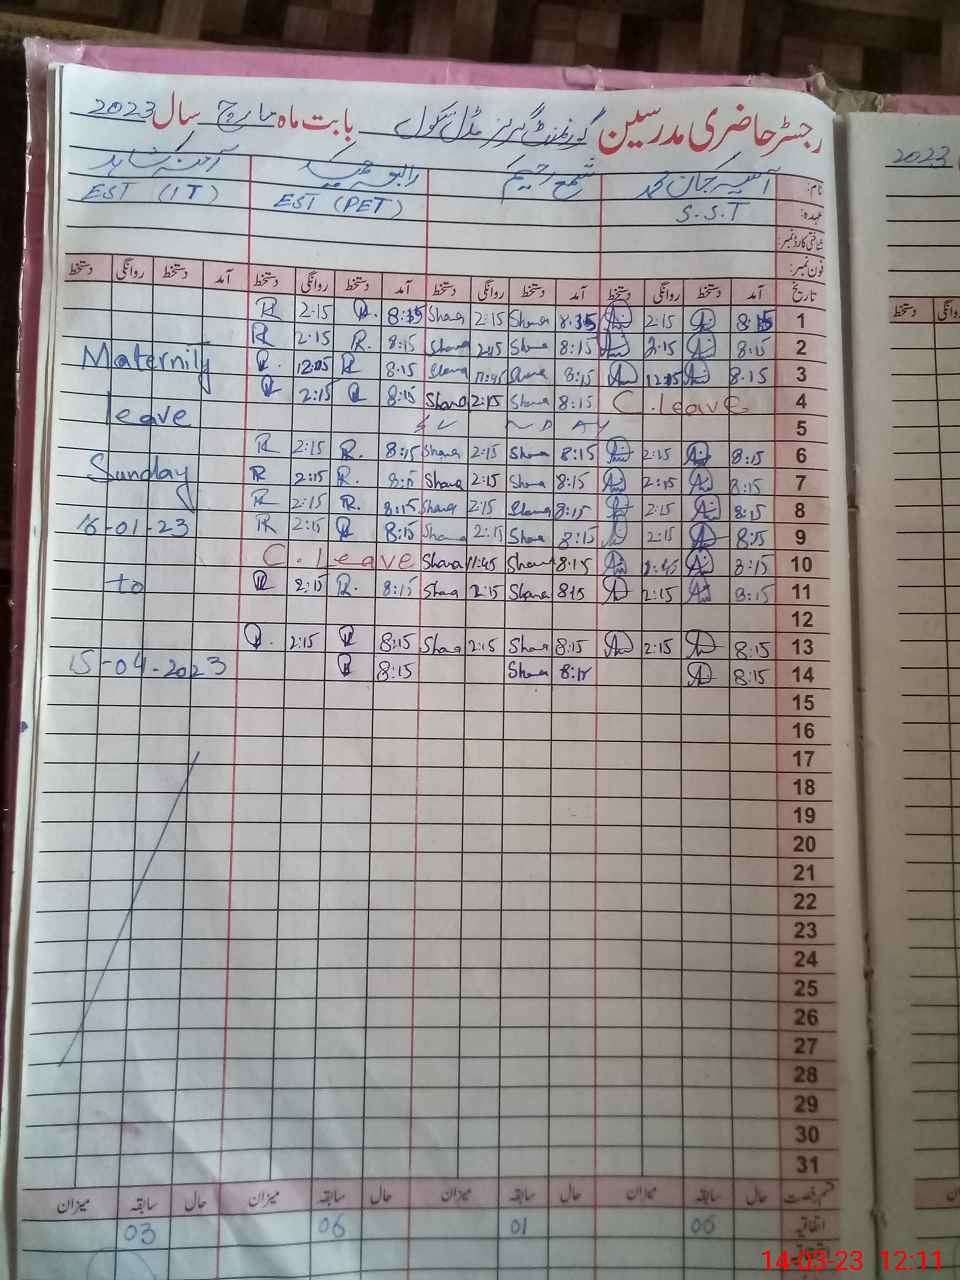 رجسٹر حاضری مدرسین گورنمنٹ گرلز مڈل سکول بابت ماہ مارچ سال 2023
نام: آسیہ جان محمد شمع رحیم رابعہ
عہدہ: S.S.T EST (PET) EST (IT)
شناختی کارڈ نمبر:
فون نمبر:
تاریخ آمد دستخط روانگی دستخط آمد دستخط روانگی دستخط آمد دستخط روانگی دستخط آمد دستخط روانگی دستخط
1 8:15 2:15 8:35 Shama 2:15 Shama 8:35 2:15 R
2 8:15 2:15 8:15 Shama 2:15 Shama 8:15 R. 2:15 R
3 8.15 12:15 8:15 Shama 11:45 Shama 8.15 R 12:15 R. Maternity
4 C. leave 8:15 Shama 2:15 Shama 8:15 R 2:15 R
5 SUNDAY leave
6 8:15 2:15 8:15 Shama 2:15 Shama 8:15 R. 2:15 R
7 8:15 2:15 8:15 Shama 2:15 Shama 8:15 R. 2:15 R Sunday
8 8:15 2:15 8:15 Shama 2:15 Shama 8:15 R. 2:15 R
9 8:15 2:15 8:15 Shama 2:15 Shama 8:15 R 2:15 R 16-01-23
10 8:15 11:45 8:15 Shama 11:45 Shama C. Leave
11 8:15 2:15 8:15 Shama 2:15 Shama 8:15 R. 2:15 R to
12
13 8:15 2:15 8:15 Shama 2:15 Shama 8:15 R 2:15 R.
14 8:15 8:15 Shama 8:15 R 15-04-2023
15
16
17
18
19
20
21
22
23
24
25
26
27
28
29
30
31
قسم رخصت حال سابقہ میزان حال سابقہ میزان حال سابقہ میزان حال سابقہ میزان
اتفاقیہ 05 01 06 03
2023
دستخط
14-03-23 12:11